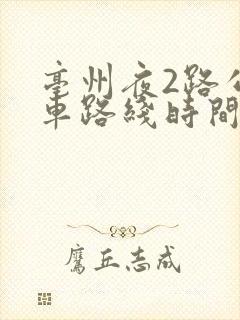 亳州夜2路公
車路綫時間
鷹丘志成